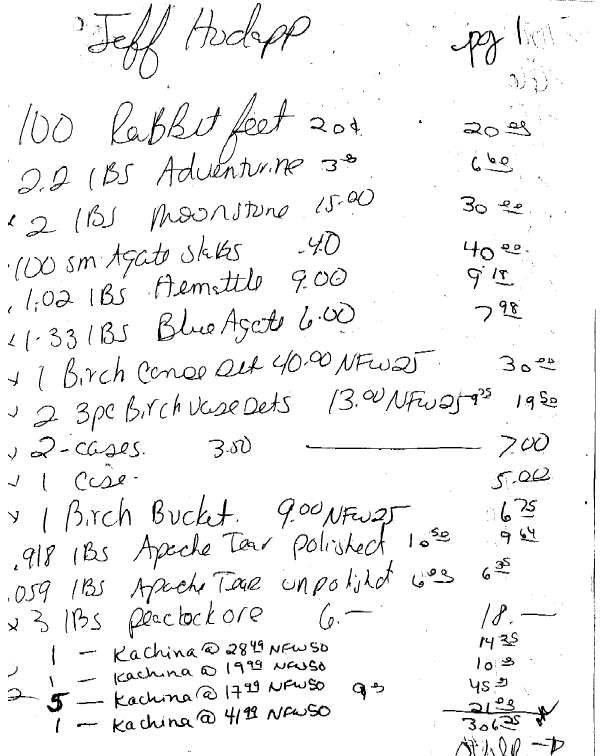 Jeff Hudapp pg 1
100 Rabbit feet 20¢ 20.00
2.2 lBS Adventurine 3.00 6.60
2 lBS Moonstone 15.00 30.00
100 sm Agate slabs .40 40.00
1.02 lBS Hematite 9.00 9.18
1.33 lBS Blue Agate 6.00 7.98
1 Birch Canoe set 40.00 NFW25 30.00
2 3pc Birch Vase Sets 13.00 NFW25 9.75 19.50
2 - cases. 3.50 7.00
1 Case. 5.00
1 Birch Bucket. 9.00 NFW25 6.75
.918 lBS Apache Tear polished 10.50 9.64
.059 lBS Apache Tear unpolished 6.00
3 lBS peactock ore 6.— 18.—
1 — Kachina @ 28.49 NFW50 14.25
1 — Kachina @ 19.99 NFW50 10.00
2 5 — Kachina @ 17.99 NFW50 9.00 45.00
1 — Kachina @ 41.99 NFW50 21.00
306.25